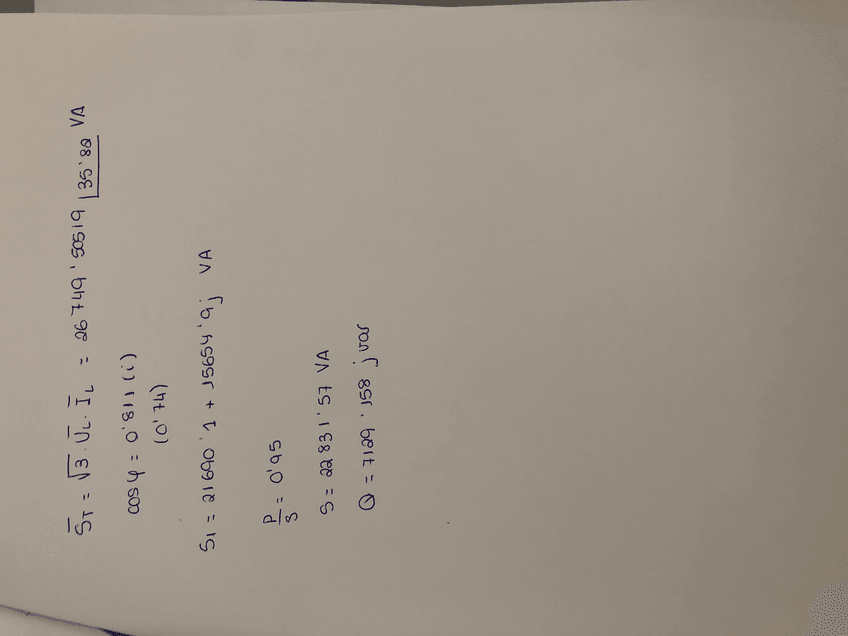 S̅T = √3 · U̅L · I̅L = 26749'50519 |35'82 VA
cos φ = 0'811 (i)
(0'74)
S1 = 21690'1 + 15654'9j VA
P/S = 0'95
S = 22831'57 VA
Q = 7129'158 j var